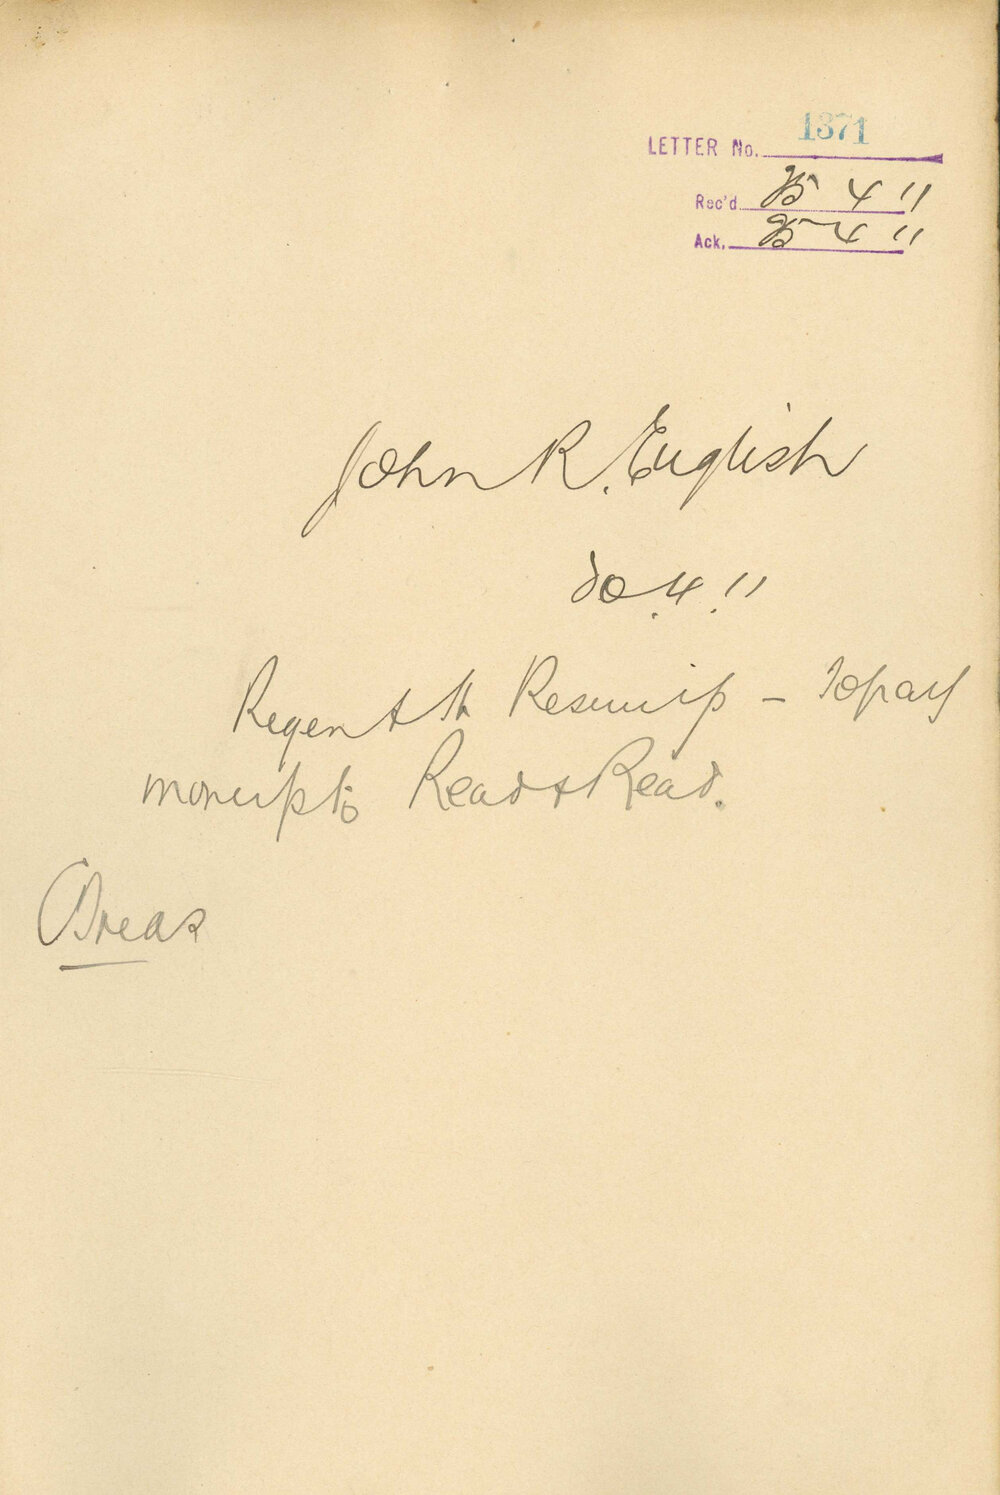 LETTER No. 1371
Rec'd 25 4 11
Ack. 25 4 11
John R. English
20.4.11
Regent St Resump – To pay
money to Read & Read.